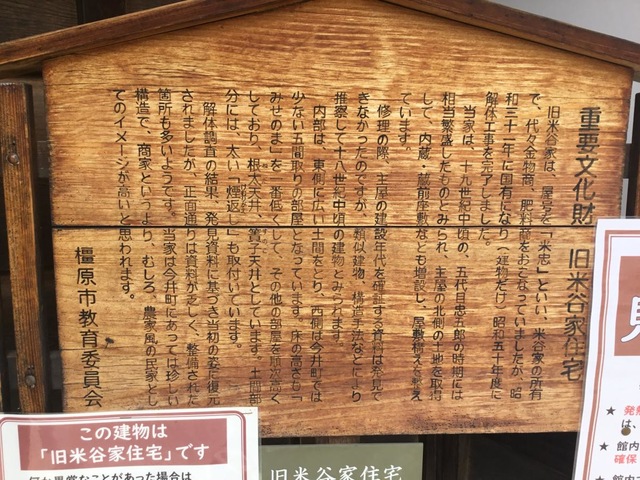 重要文化財　旧米谷家住宅
旧米谷家は、屋号を「米忠」といい、米谷家の所有
で、代々金物商、肥料商をおこなっていましたが、昭
和三十一年に国有になり（建物だけ）昭和五十年度に
解体工事を完了しました。
当家は、十九世紀中頃の、五代目忠五郎の時期には
相当繁盛したものとみられ、主屋の北側の土地を取得
して、内蔵・蔵前座敷なども増設し、屋敷構えを整え
ています。
修理の際、主屋の建設年代を確証する資料は発見で
きなかったのですが、類似建物、構造手法などにより
推察して十八世紀中頃の建物とみられます。
内部は、東側に広い土間をとり、西側は今井町では
少ない五間取りの部屋となっています。床の高さも「
みせのま」を一番低くして、その他の部屋を順次高く
しており、根太天井、簀子天井としています。土間部
分には、太い「煙返し」も取付いています。
解体調査の結果、発見資料に基づき当初の姿に復元
されましたが、正面通りは資料が乏しく、整備された
箇所も多いようです。当家は今井町にあっては珍しい
構造で、商家というより、むしろ、農家風の民家とし
てのイメージが高いと思われます。
橿原市教育委員会
この建物は
「旧米谷家住宅」です
何か異常なことがあった場合は
旧米谷家住宅
★ 発熱
は、
★ 館内
確保
★ 館内